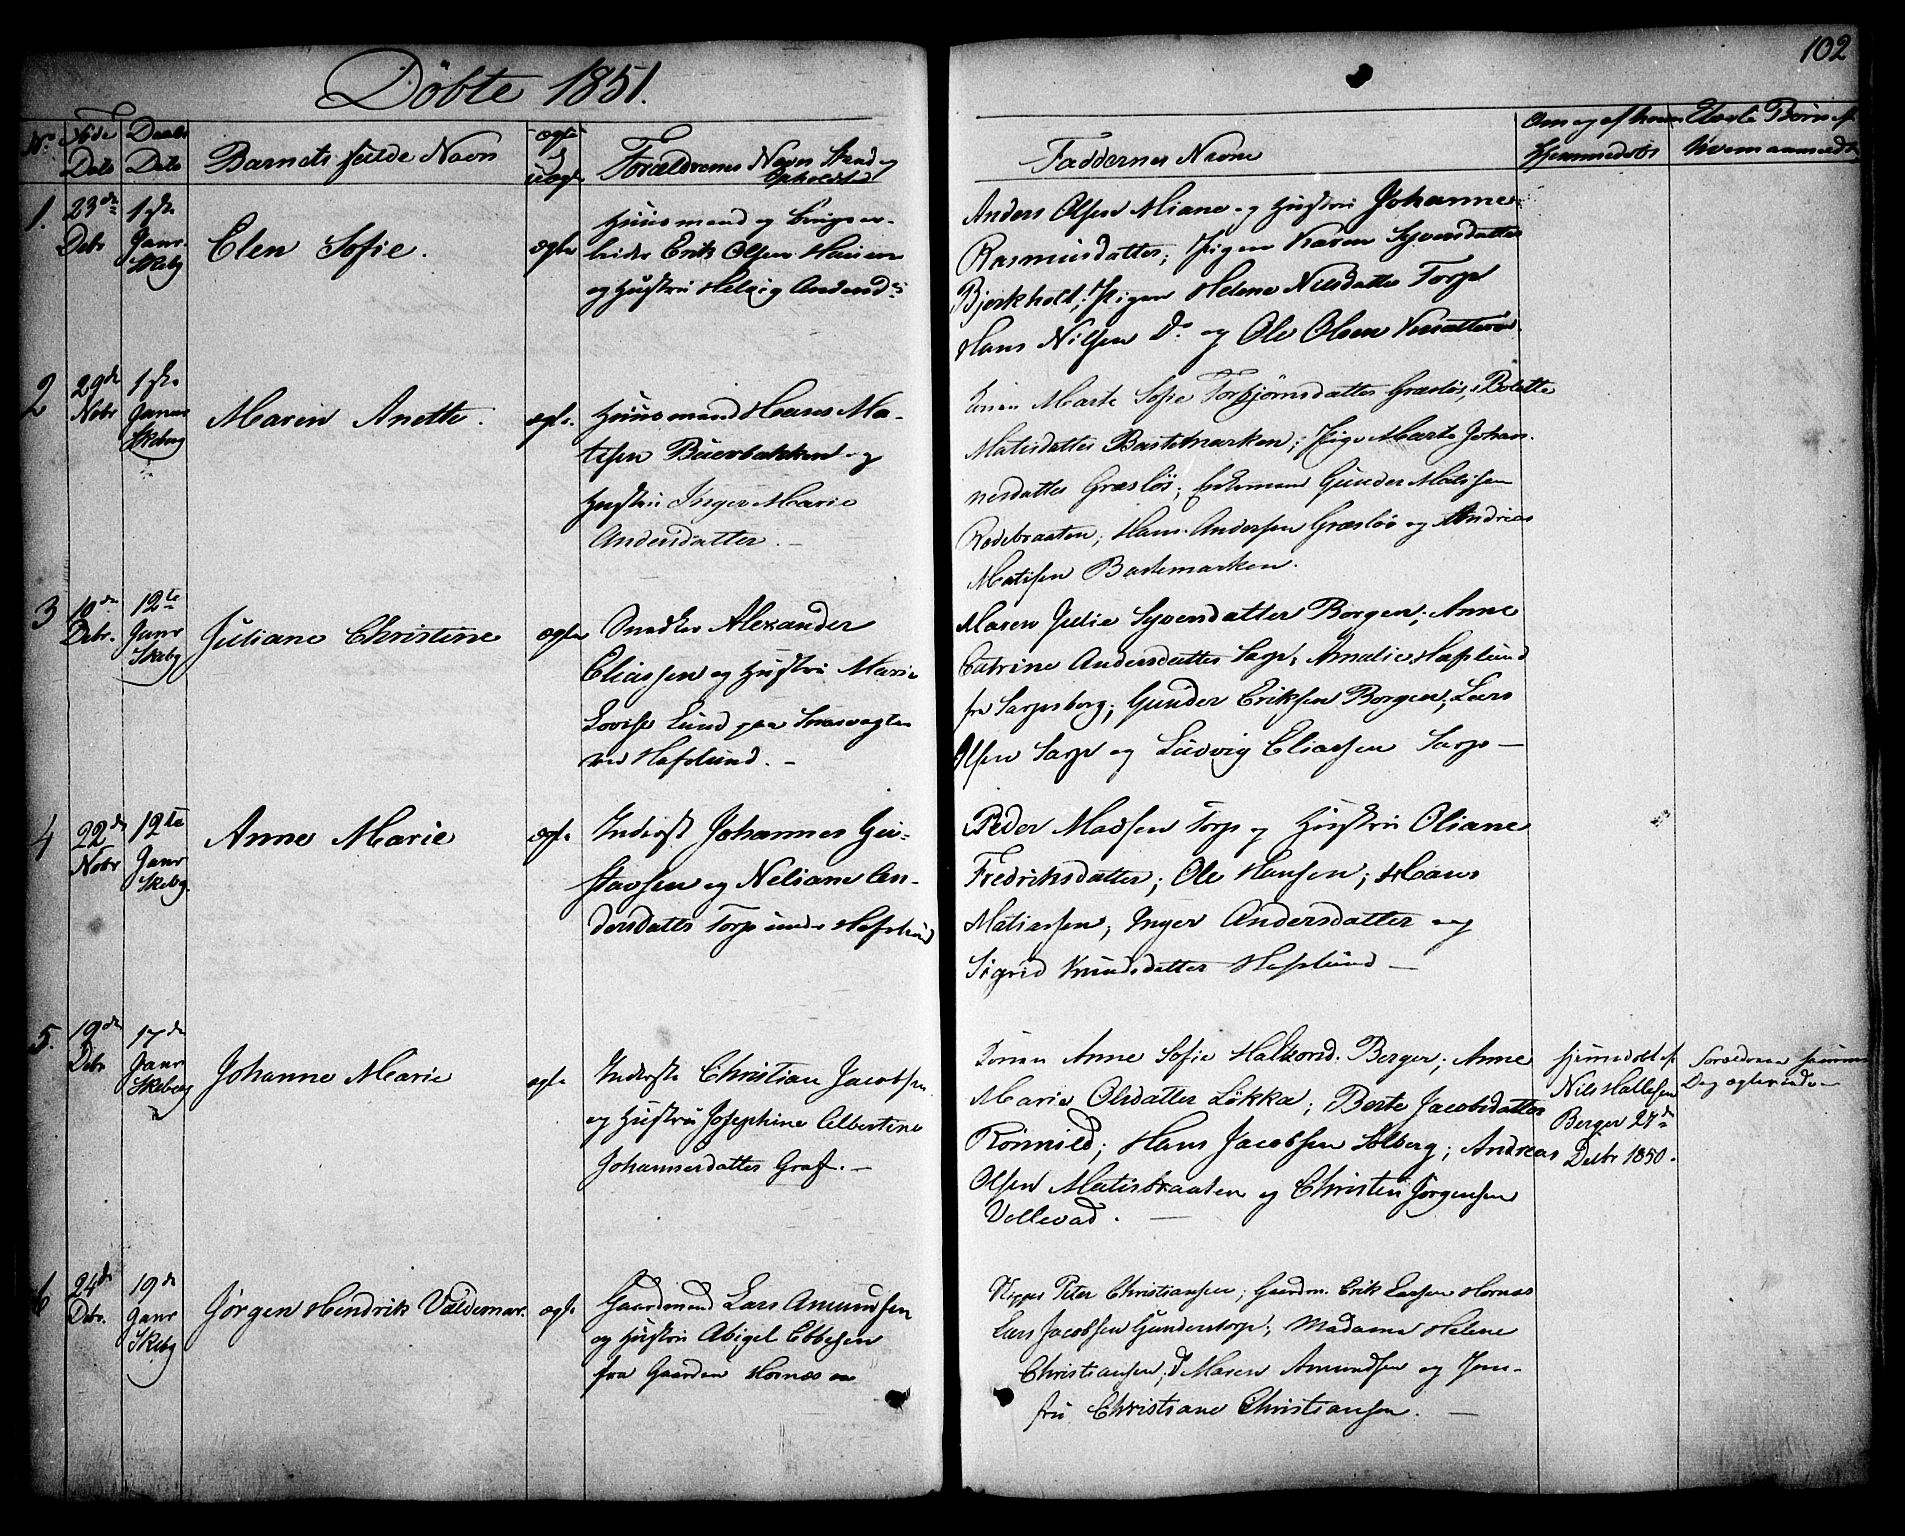 102
Döbte 1851.
No
Føde Dato
Daabs Dato
Barnets fulde Navn
ægte / uægte
Forældrenes Navn Stand og Opholdsted
Faddernes Navne
Om og af hvem Hjemmedøbt
Uægte Børn af hvem anmeldt
1.
23de Debr
1ste Janr. Skebg
Elen Sofie.
ægte
Huusmand og
Erik Olsen
og Hustru Helvig Andersd.
Anders Olsen og Hustru Johanne
Rasmusdatter; Pigen Karen Syversdatter
Bjørkholt; Pigen Helene Nilsdatter Torp
Hans Nilsen Do og Ole Olsen
2
29de Nobr
1ste Januar Skeberg
Maren Anette.
ægte.
Huusmand Hans Ma-
tisen Buerbakken og
Hustru Inger Marie
Andersdatter. -
Konen Marte Sofie Torbjørnsdatter Græsløs; Bolette
Matisdatter Bastemarken; Pige Marte Johan-
nesdatter Græsløs; Gunder Matisen
Rødebraaten; Hans Andersen Græsløs og Andreas
Matisen Bastemarken.
3
10de Debr.
12te Janr Skebg
Juliane Christine
ægte
Snedker Alexander
Eliassen og Hustru Marie
Lovise Lund paa
ved Hafslund. -
Maren Julie Syversdatter Borgen; Anne
Catrine Andersdatter Sarp; Amalie Hafslund
fra Sarpsborg; Gunder Eriksen Borgen; Lars
Olsen Sarp og Ludvig Eliassen Sarp -
4
22de Nobr
12te Janr Skebg.
Anne Marie
ægte
Inderst Johannes Gu-
stavsen og Neliane An-
dersdatter Torp under Hafslund
Peder Madsen Torp og Hustru Oliane
Fredriksdatter; Ole Hansen; Hans
Matiassen; Inger Andersdatter og
Sigrid Knudsdatter Hafslund -
5.
19de Debr
17de Janr Skeberg
Johanne Marie
ægte
Inderste Christian Jacobsen
og Hustru Josephine Albertine
Johannesdatter Graf. -
Konen Anne Sofie Halvorsd. Berger; Anne
Marie Olsdatter Løkka; Berte Jacobsdatter
Rönnild; Hans Jacobsen Solberg; Andreas
Olsen Matisbraaten og Christen Jørgensen
Vollevad. -
Hjemdøbt af
Nils Hallesen
Berger 27de
Debr 1850.
Forældrene
Dag ægteviede -
6
24de Debr.
19de Janr Skebg
Jørgen Hendrik Valdemar.
ægte
Gaardmand Lars Amundsen
og Hustru Abigel Ebbesen
fra Gaarden Hornæs
Peter Christiansen; Gaardm. Erik Larsen Hornæs
Lars Jacobsen Gunderstorp; Madame Helene
Christiansen; Do Maren Amundsen og Jom-
fru Christiane Christiansen. -